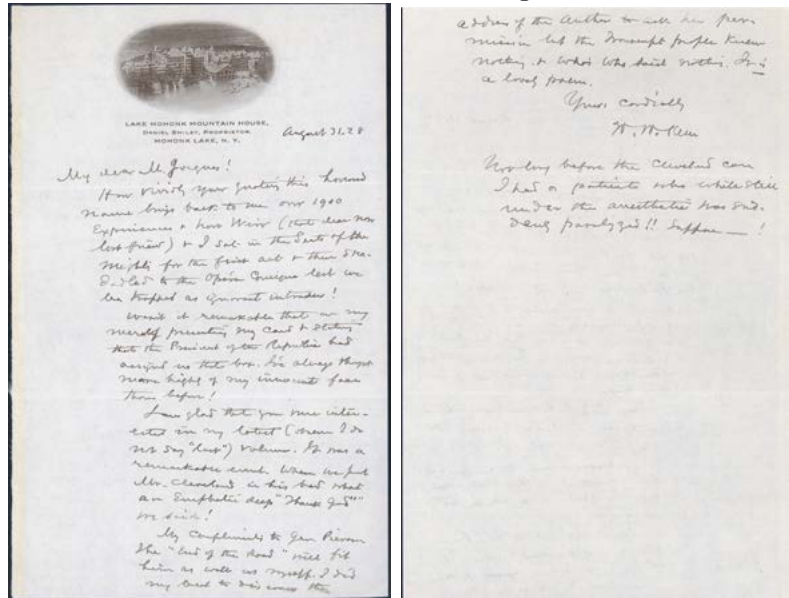 LAKE MOHONK MOUNTAIN HOUSE,
DANIEL SMILEY, PROPRIETOR
MOHONK LAKE, N. Y.
August 31, 28
My dear M.
How vividly your quoting this honored
name brings back to me our 1900
Experiences & how Weir (that dear now
lost friend) & I sat in the Seats of the
Mighty for the first act & then
to the Opéra Comique lest we
be trapped as ignorant intruders!
Wasn't it remarkable that on my
merely presenting my card & stating
that the President of the Republic had
assigned us that box. I've always thought
more highly of my innocent face
than before!
I am glad that you were inter-
ested in my latest (observe I do
not say "last") volume. It was a
remarkable event. When we put
Mr. Cleveland in his bed what
an Emphatic deep "Thank God"
we said!
My Compliments to Gen
The "End of the Road" will fit
him as well as myself. I did
my best to discover the
address of the Author to ask her per-
mission but the Transcript people knew
nothing & Who's Who said nothing. It is
a lovely poem.
Yours cordially
W. W. Keen
Not long before the Cleveland case
I had a patient who while still
under the anaesthetic was sud-
denly paralyzed!! Suppose — !